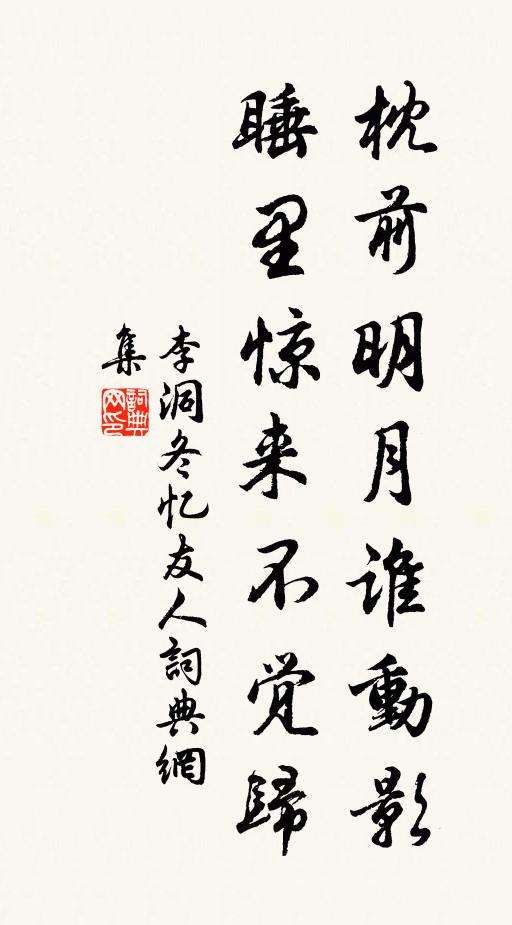 枕前明月谁動影
睡里惊来不觉歸
李洞冬忆友人詞典網
集
詞典网印